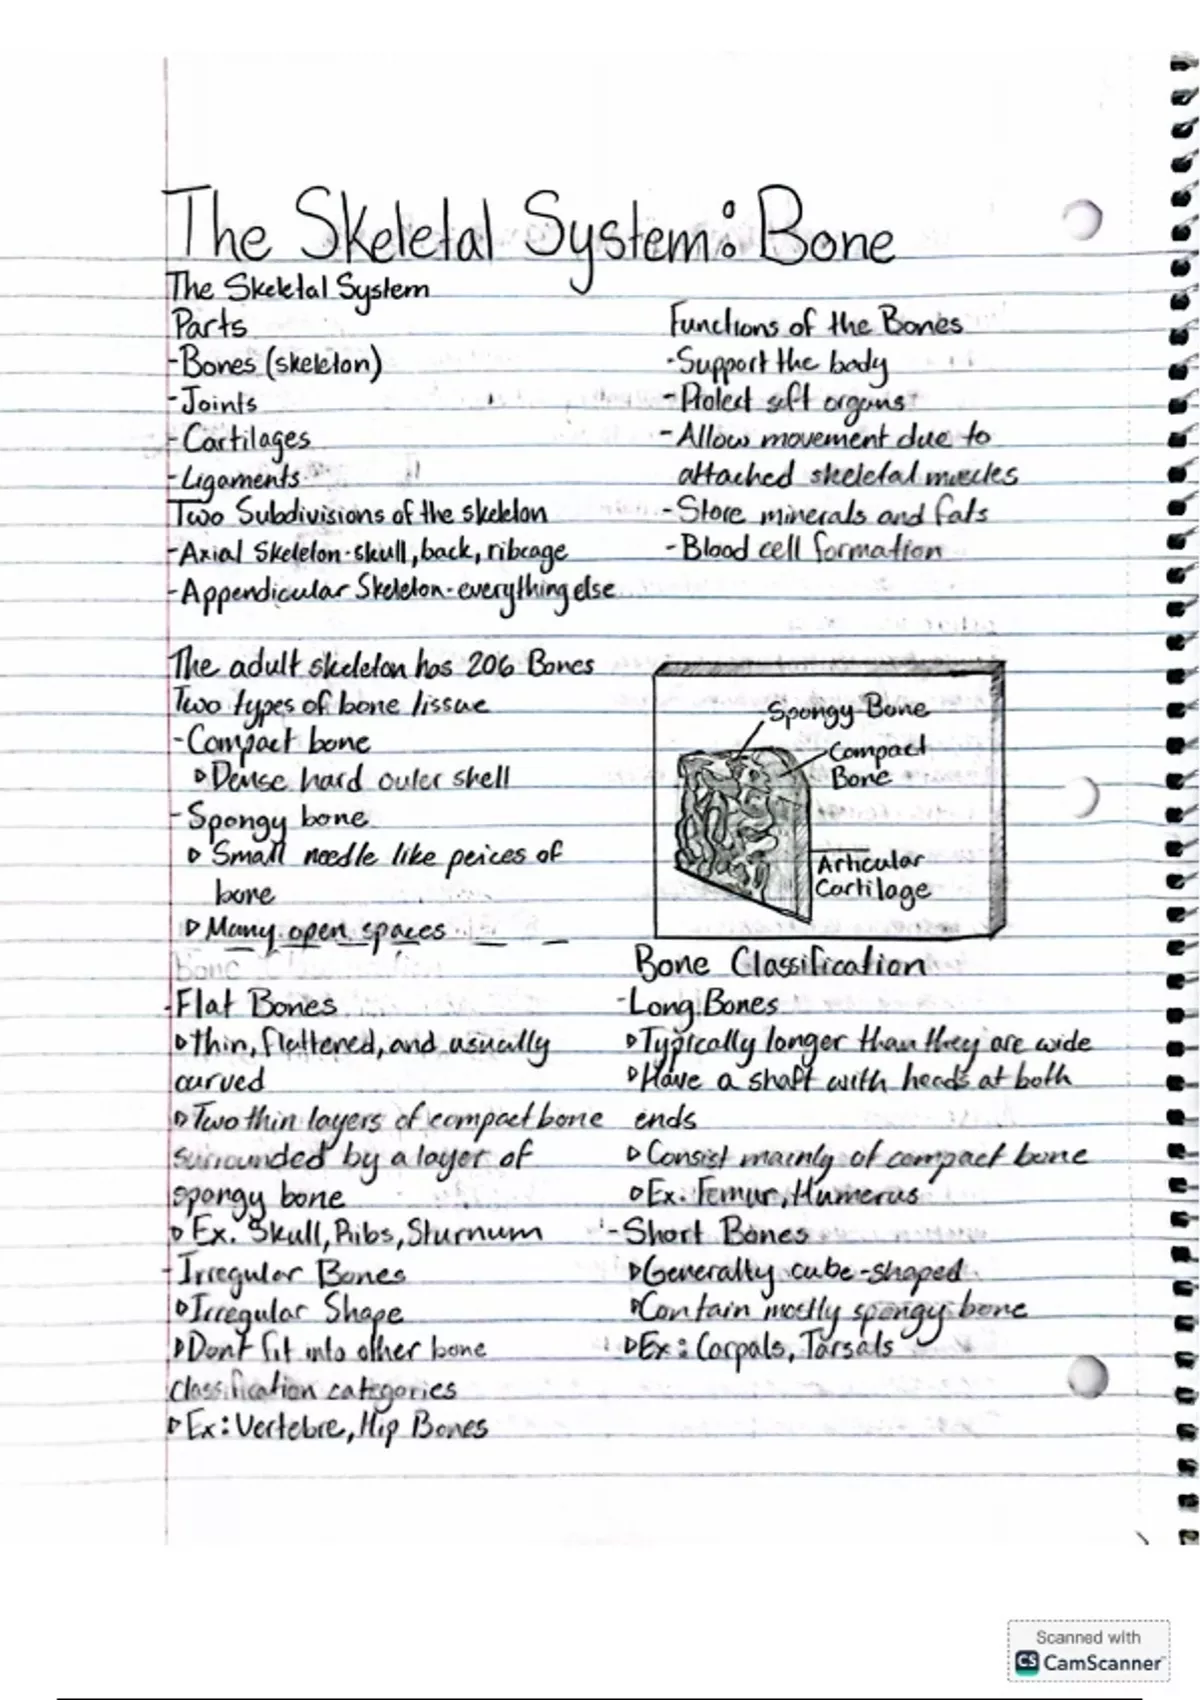 The Skeletal System: Bone
The Skeletal System
Parts
-Bones (skeleton)
-Joints
-Cartilages
-Ligaments
Two Subdivisions of the skeleton
-Axial Skeleton-skull, back, ribcage
-Appendicular Skeleton-everything else
Functions of the Bones
-Support the body
-Protect soft organs
-Allow movement due to
attached skeletal muscles
-Store minerals and fats
-Blood cell formation
The adult skeleton has 206 Bones
Two types of bone tissue
-Compact bone
▹Dense hard outer shell
-Spongy bone
▹Small needle like peices of
bone
▹Many open spaces
Spongy Bone
Compact
Bone
Articular
Cartilage
Bone Classification
-Flat Bones
▹thin, flattened, and usually
curved
▹Two thin layers of compact bone
surrounded by a layer of
spongy bone
▹Ex. Skull, Ribs, Sturnum
-Irregular Bones
▹Irregular Shape
▹Dont fit into other bone
classification categories
▹Ex: Vertebre, Hip Bones
-Long Bones
▹Typically longer than they are wide
▹Have a shaft with heads at both
ends
▹Consist mainly of compact bone
▹Ex. Femur, Humerus
-Short Bones
▹Generally cube-shaped
▹Contain mostly spongy bone
▹Ex: Carpals, Tarsals
Scanned with
CS CamScanner